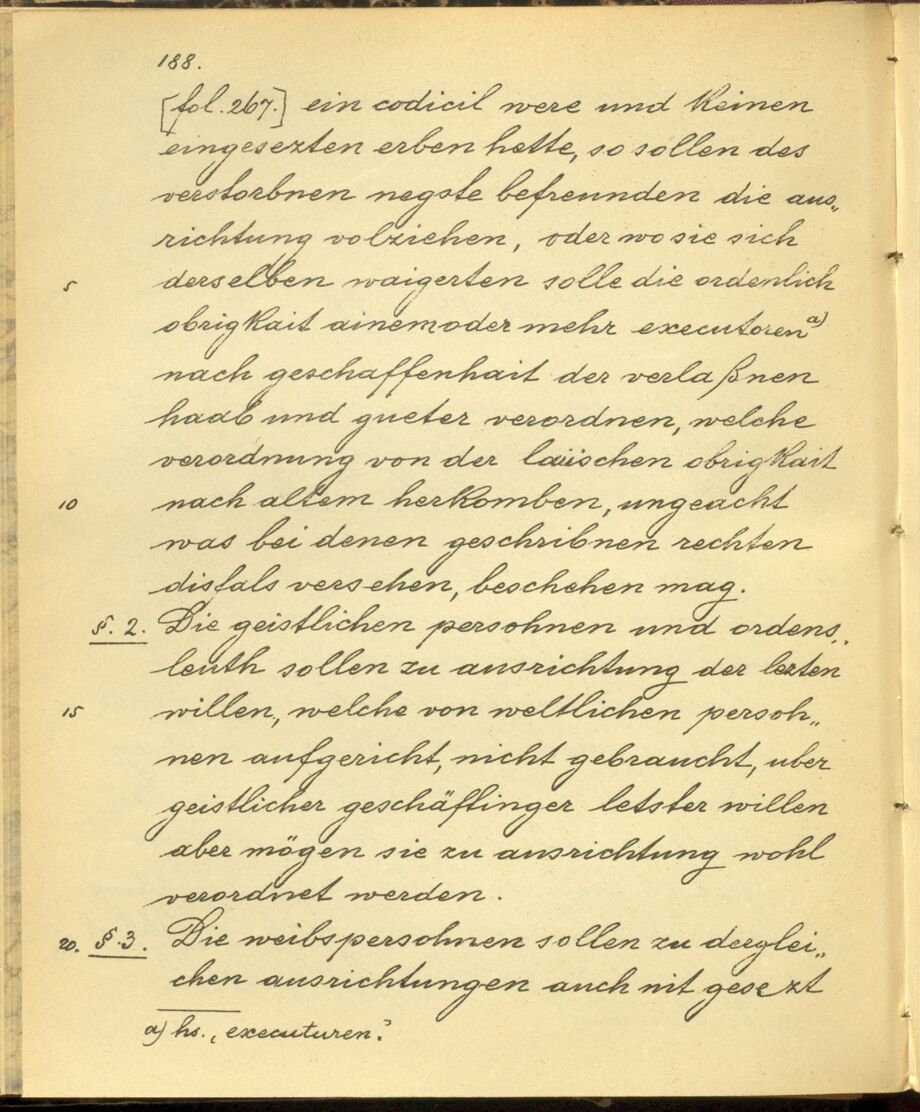 188.
[fol. 267.] ein codicil were und keinen
eingesezten erben hette, so sollen des
verstorbnen negste befreunden die aus„
richtung volziehen, oder wo sie sich
5 derselben waigerten solle die ordenlich
obrigkait ainem oder mehr executoren a)
nach geschaffenhait der verlaßnen
haab und gueter verordnen, welche
verordnung von der laiischen obrigkait
10 nach altem herkomben, ungeacht
was bei denen geschribnen rechten
disfals versehen, beschehen mag.
§. 2. Die geistlichen persohnen und ordens„
leuth sollen zu ausrichtung der lezten
15 willen, welche von weltlichen persoh„
nen aufgericht, nicht gebraucht, uber
geistlicher geschäfflinger letster willen
aber mögen sie zu ausrichtung wohl
verordnet werden.
20. §. 3. Die weibspersohnen sollen zu derglei„
chen ausrichtungen auch nit gesezt
a) hs. „executuren“.